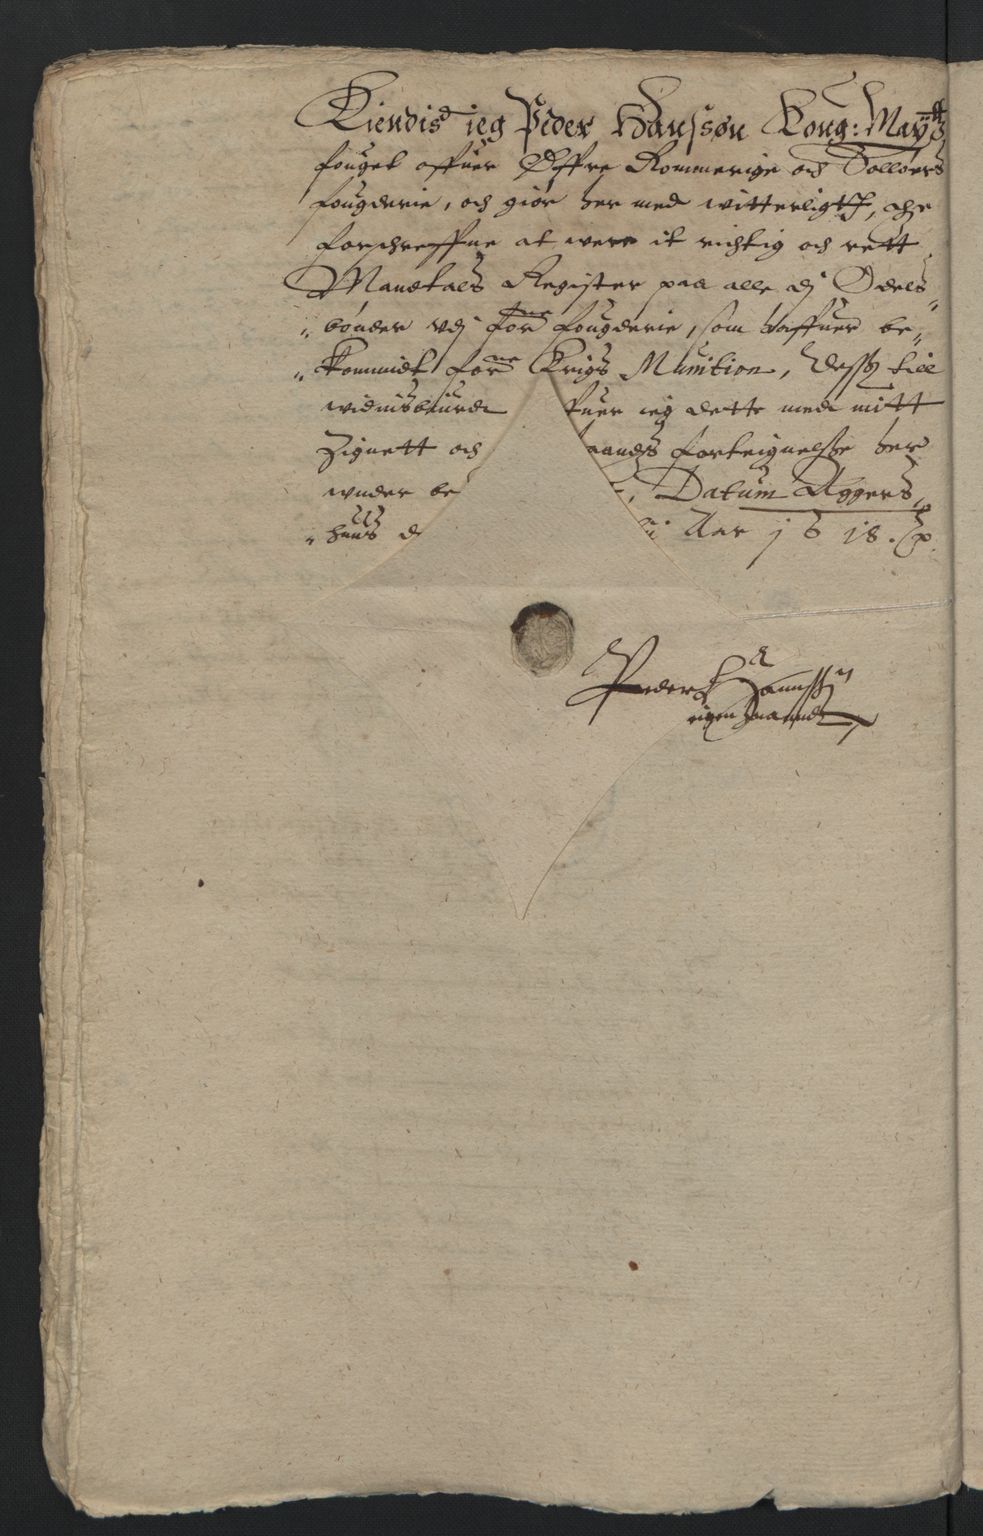 Kiendis ieg Peder Hanssøn Kong: Maytts
fouget offuer Øffre Rommerige och Solløers
fougderie, och giør her med witterligt,
forschreffne at were it richtig och rett
Mandtals Register paa alle dj Odels„
„bønder vdj forne fougderie, som haffuer be„
„kommidt forne Krigs Munition, Dess till
widnisbiurd fuer ieg dette med mitt
Zignett och haands forteignelsse her
wnder be Datum Aggers„
„huus d Aar 1618.
Peder Hannssn
eigen haandt